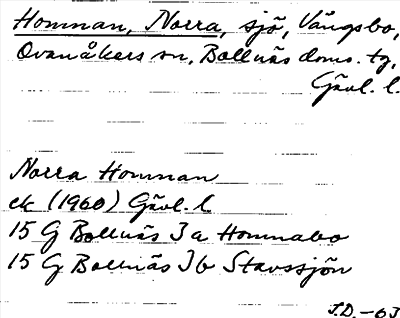 Homnan, Norra, sjö, Vängsbo,
Ovanåkers sn, Bollnäs doms. tg,
Gävl. l.
Norra Homnan
ek (1960) Gävl. l
15 G Bollnäs 3 a Homnabo
15 G Bollnäs 3 b Stavssjön
J.D. -63